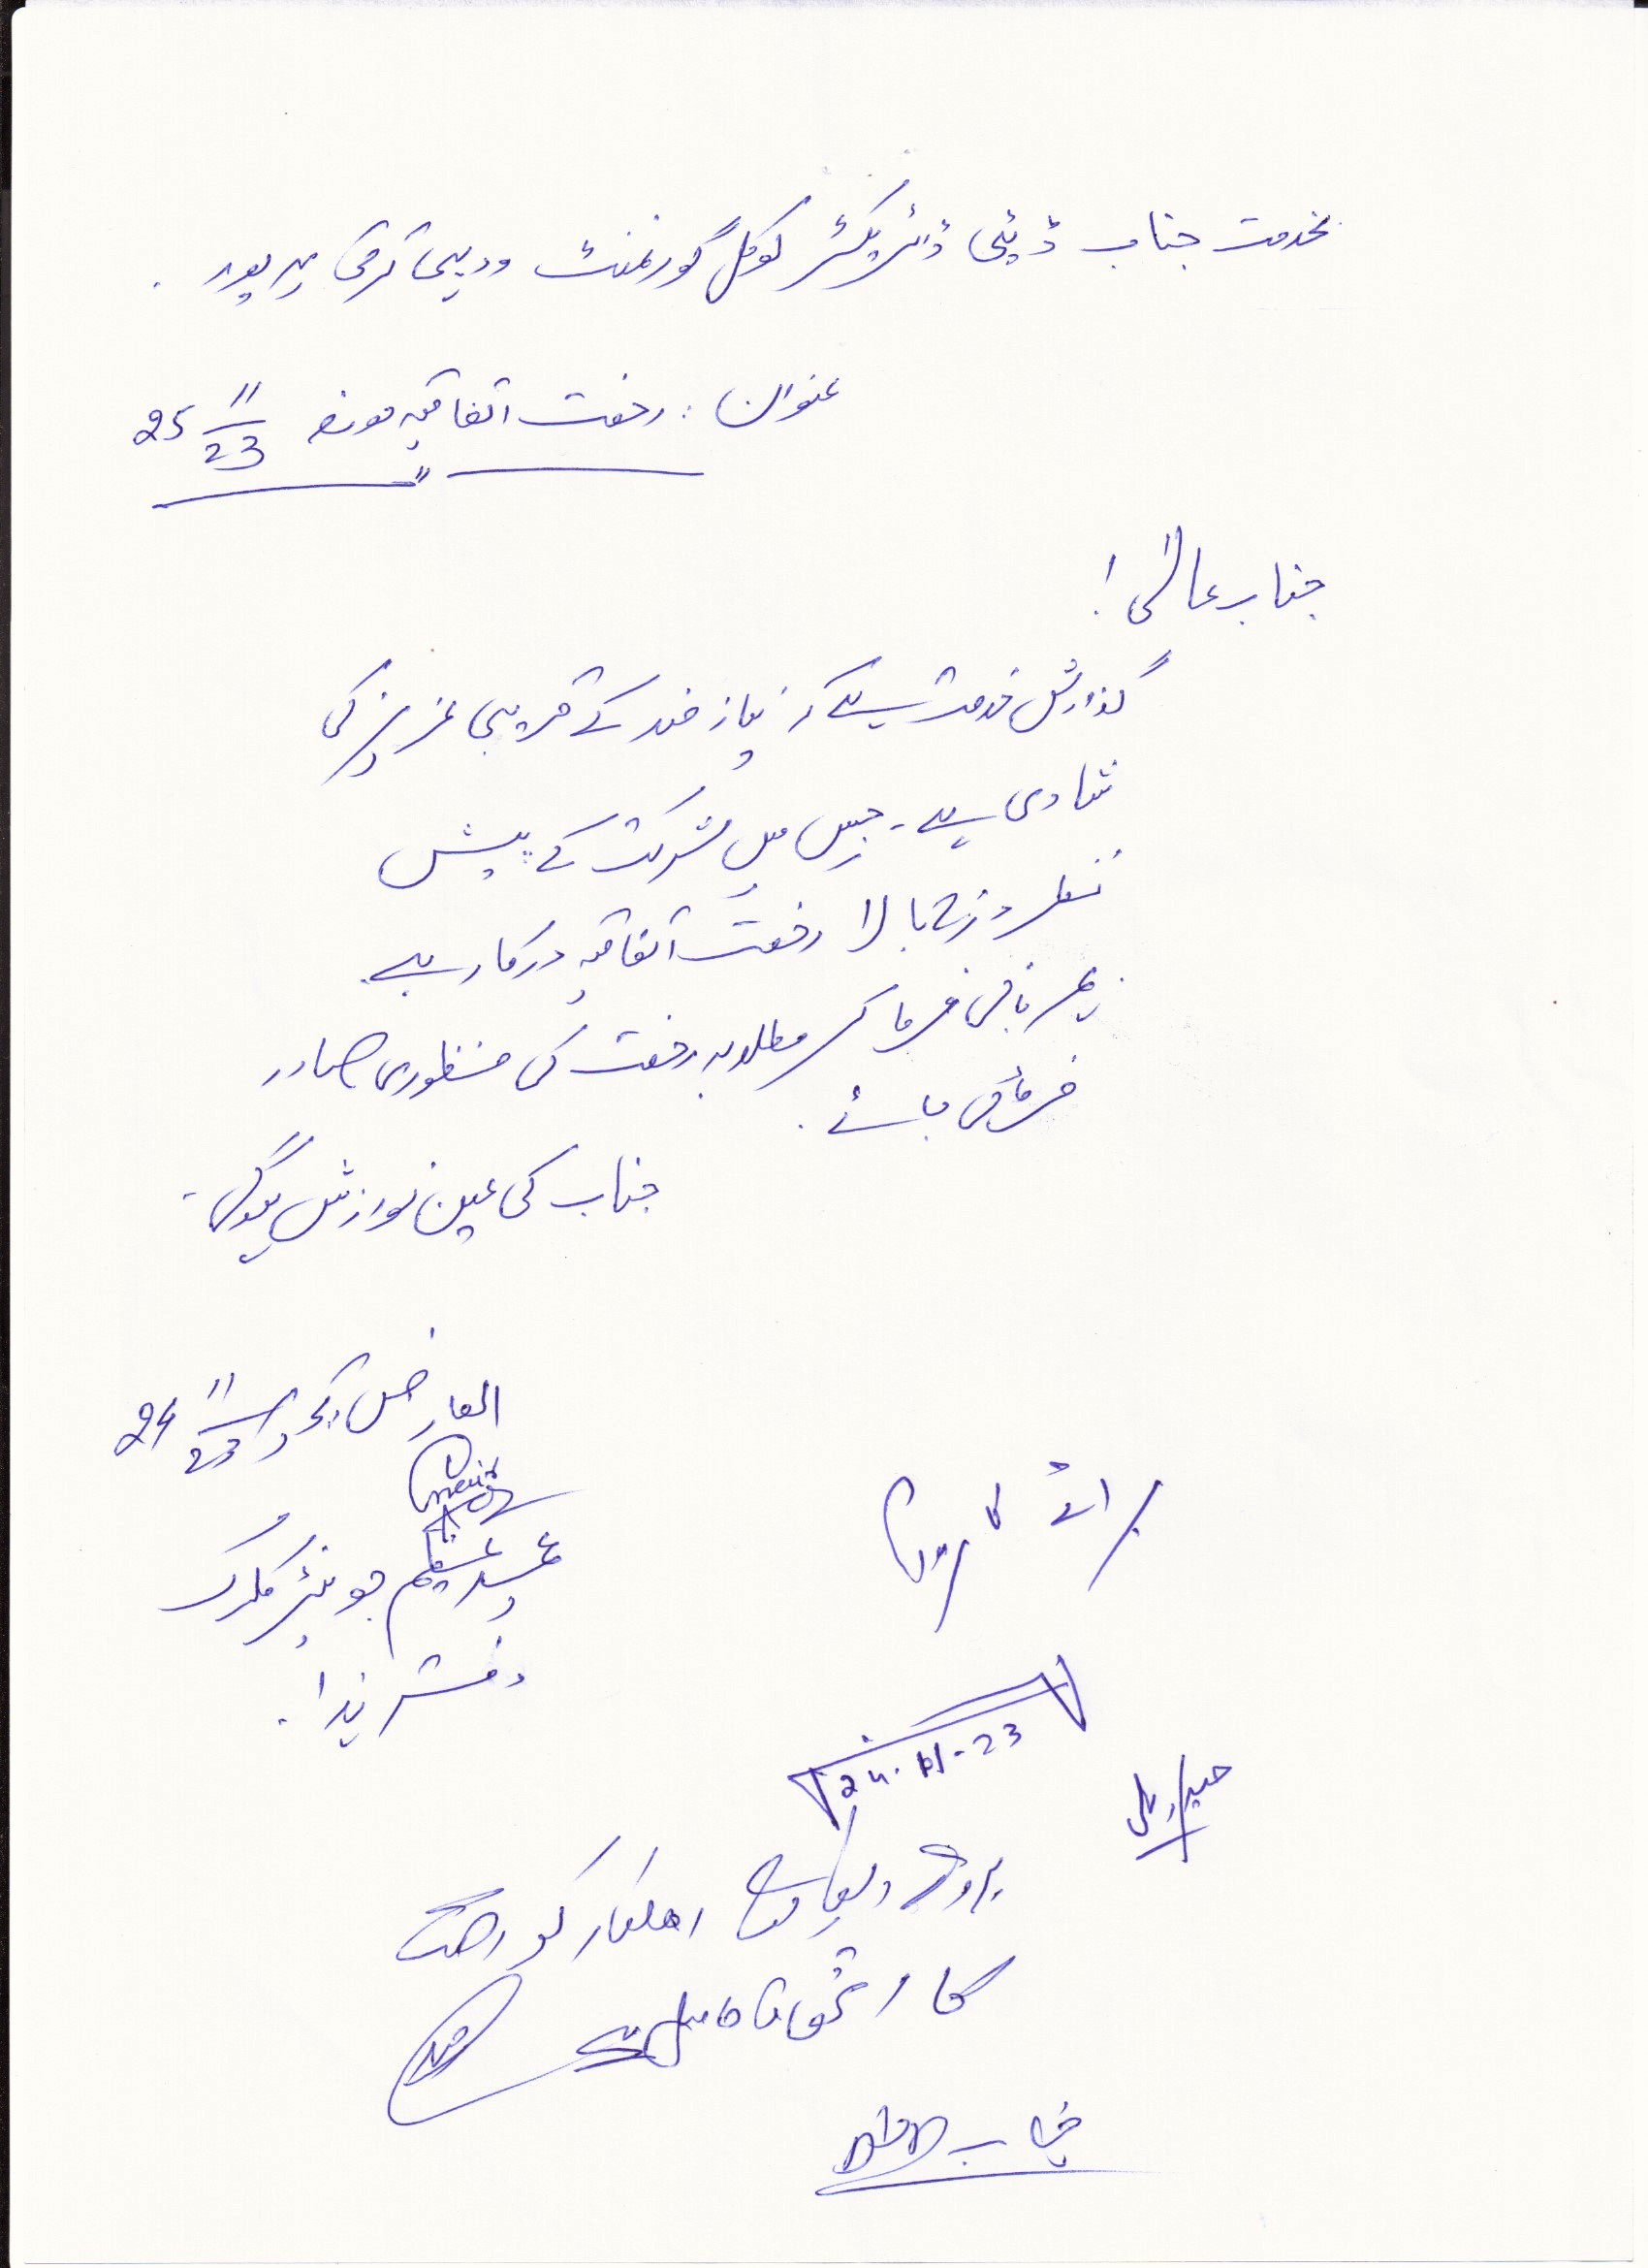 بخدمت جناب ڈپٹی ڈائریکٹر لوکل گورنمنٹ ودیہی ترقی میرپور ۔
عنوان : رخصت اتفاقیہ مورخہ 25/11/23
جناب عالی !
گذارش خدمت ہے کہ نیاز مند کے قریبی عزیز کی
شادی ہے ۔ جس میں شرکت کے پیش
نظر روز بالا رخصت اتفاقیہ درکار ہے
مہربانی فرما کر مطلوبہ رخصت کی منظوری صادر
فرمائی جائے ۔
جناب کی عین نوازش ہوگی ۔
العارض تحریر 24/11/23
محمد عظیم جونیئر کلرک
دفتر ہذا ۔
برائے کارروائی
24.11-23
حیدر علی
بروئے ریکارڈ اہلکار کو رخصت
کا استحقاق حاصل ہے
جناب